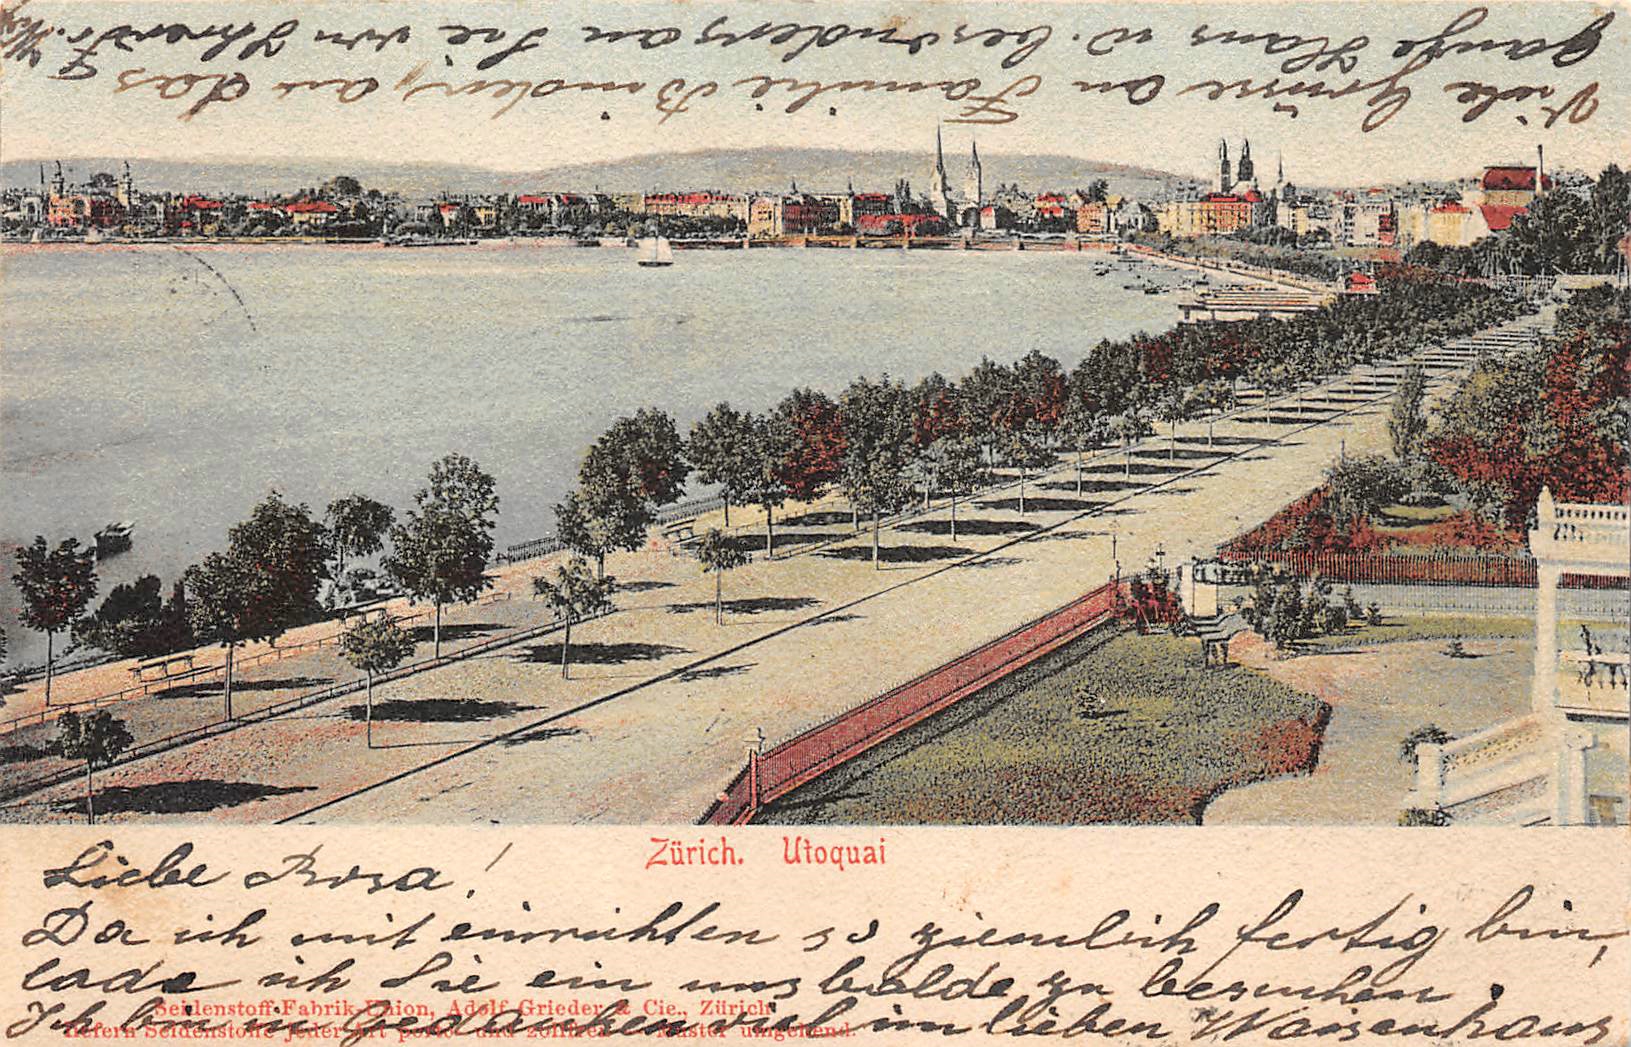 Zürich. Utoquai
Liebe Rosa!
Da ich mit einrichten so ziemlich fertig bin,
lade ich Sie ein uns balde zu besuchen.
Ich bin in Gedanken viel im lieben Waisenhaus
Seidenstoff-Fabrik-Union, Adolf Grieder & Cie., Zürich
liefern Seidenstoffe jeder Art porto- und zollfrei — Muster umgehend.
Viele Grüsse an Familie Binder, an das
ganze Haus u. besonders an Sie von Ihrer